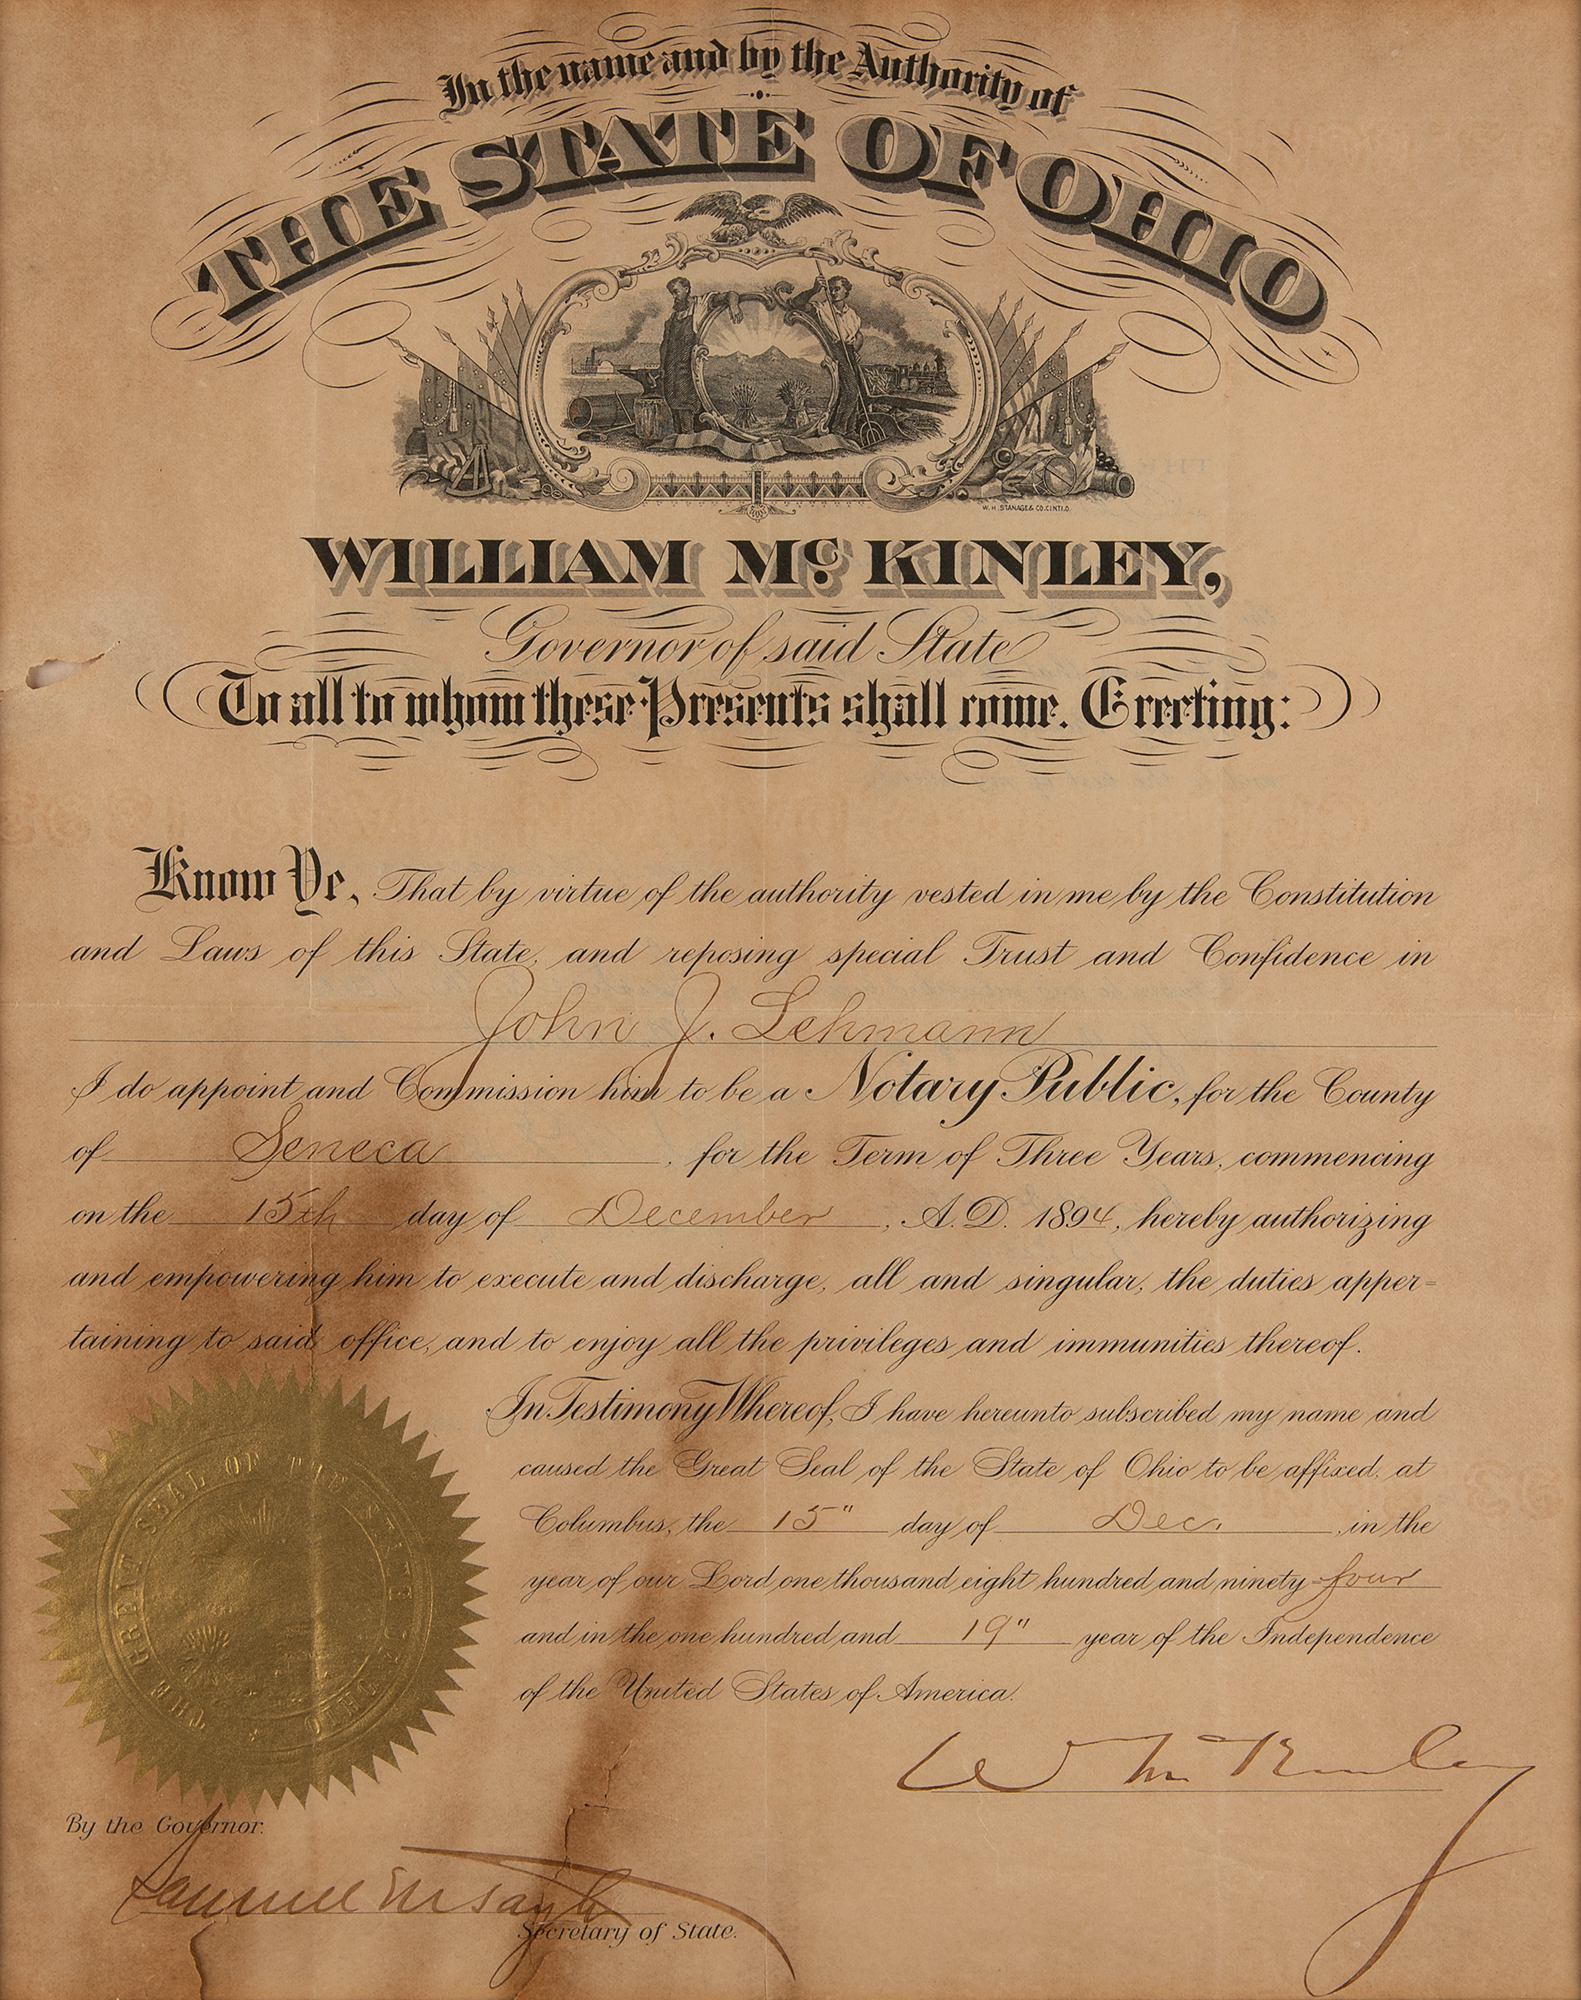 In the name and by the Authority of
THE STATE OF OHIO
W. H. STANAGE & CO. CINTI. O.
WILLIAM McKINLEY,
Governor of said State
To all to whom these Presents shall come. Greeting:
Know Ye, That by virtue of the authority vested in me by the Constitution
and Laws of this State, and reposing special Trust and Confidence in
John J. Lehmann
I do appoint and Commission him to be a Notary Public, for the County
of Seneca, for the Term of Three Years, commencing
on the 15th day of December, A.D. 1894, hereby authorizing
and empowering him to execute and discharge, all and singular, the duties apper-
taining to said office, and to enjoy all the privileges and immunities thereof.
In Testimony Whereof, I have hereunto subscribed my name and
caused the Great Seal of the State of Ohio to be affixed, at
Columbus, the 15" day of Dec. in the
year of our Lord one thousand eight hundred and ninety-four
and in the one hundred and 19" year of the Independence
of the United States of America.
THE GREAT SEAL OF THE STATE OF OHIO
W McKinley
By the Governor.
Samuel M Taylor
Secretary of State.